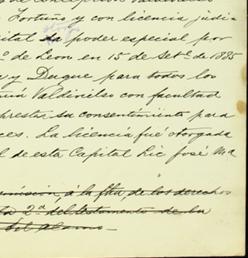 Fortuño y con licencia judi
ital de poder especial por
de Leon en 15 de Set.e de 1885
y Duque para todos los
Valdivielso con facultad
prestar su consentimiento para
ces. La licencia fué otorgada
l de esta Capital Lic José Ma
á la fha, de los derechos
2ª del testamento de la